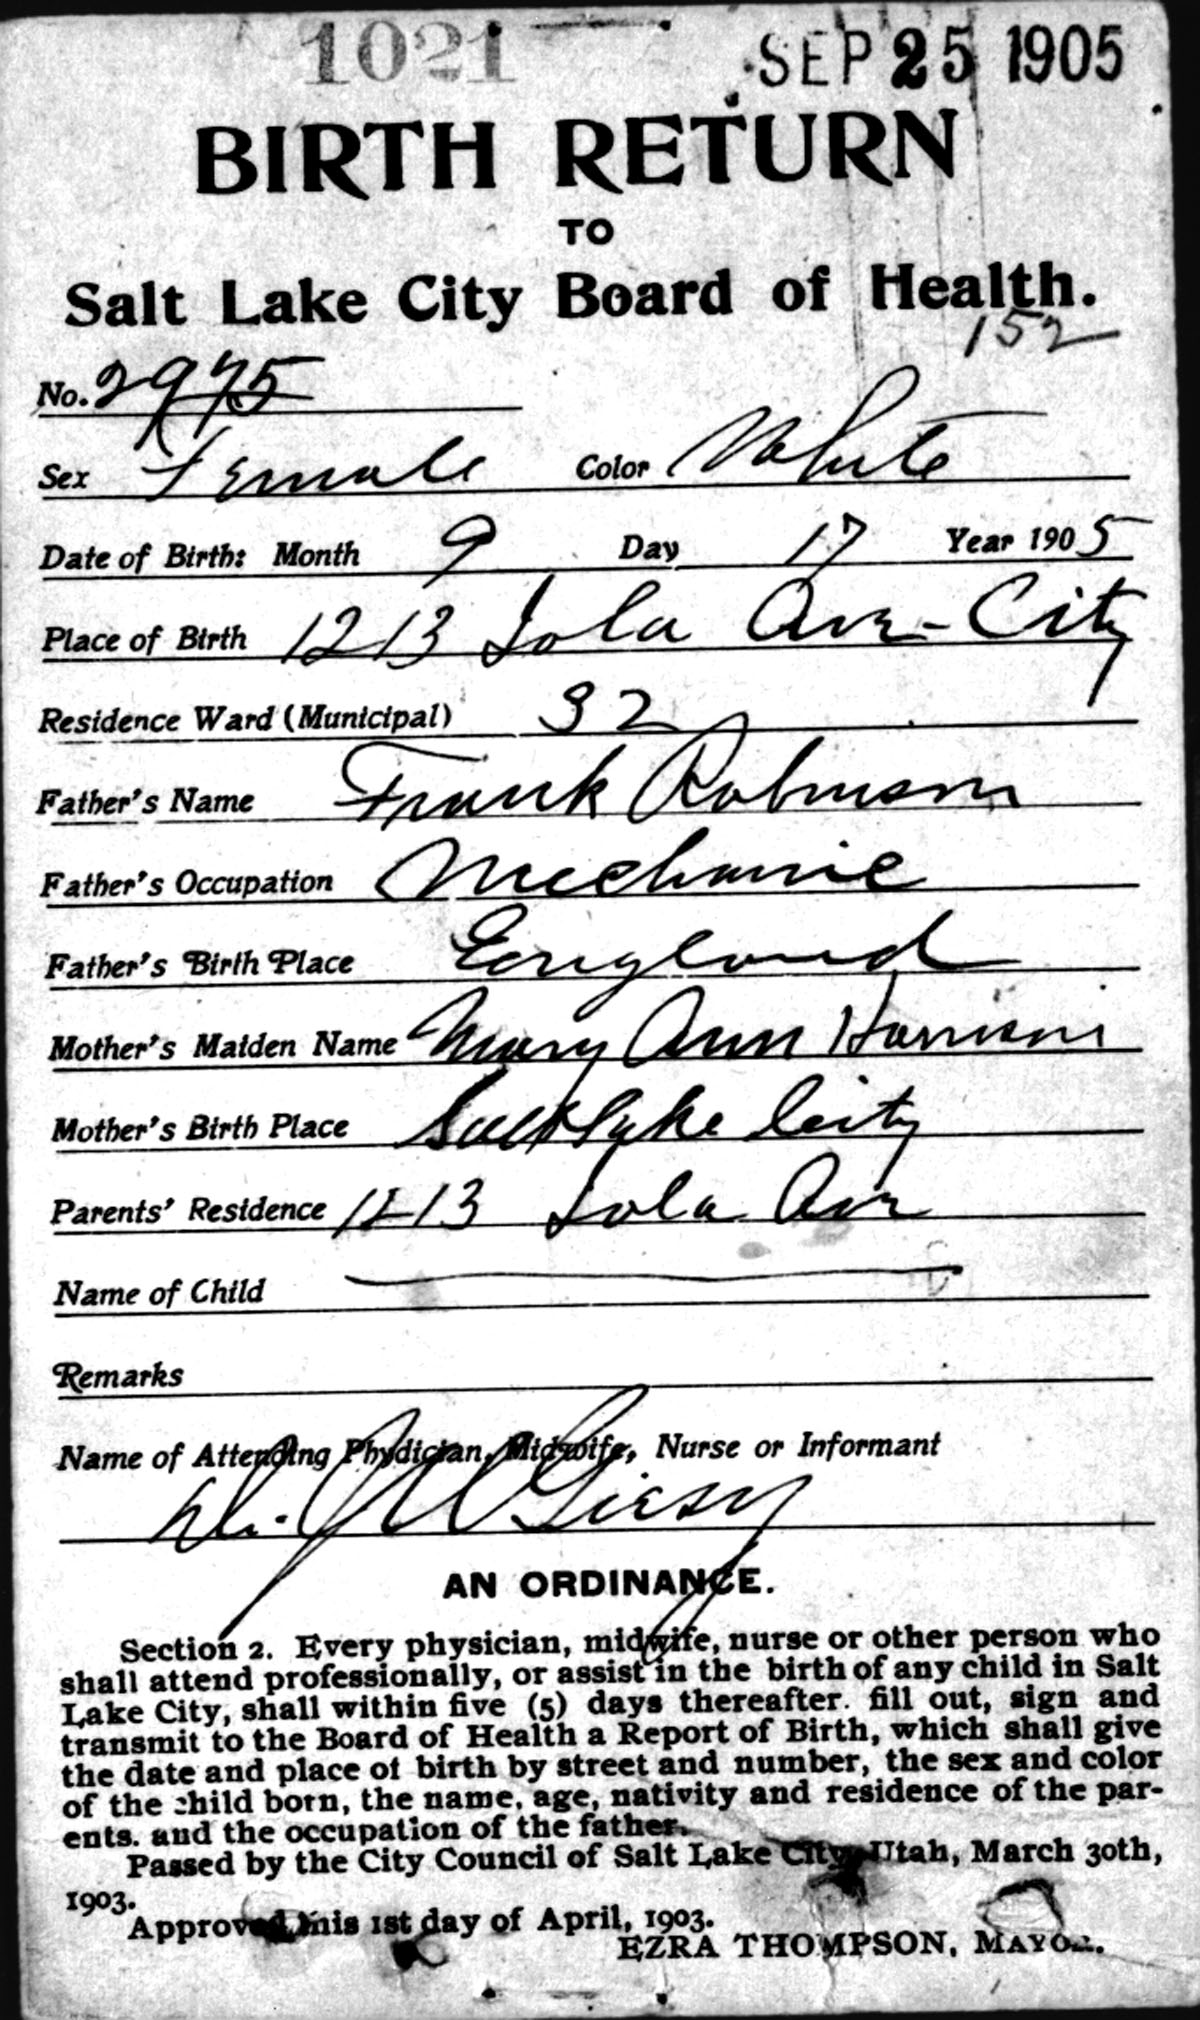 1021 SEP 25 1905
BIRTH RETURN
TO
Salt Lake City Board of Health.
152
No. 2975
Sex Female Color White
Date of Birth: Month 9 Day 17 Year 1905
Place of Birth 1213 Iola Ave - City
Residence Ward (Municipal) 32
Father's Name Frank Robinson
Father's Occupation Mechanic
Father's Birth Place England
Mother's Maiden Name Mary Ann Harrison
Mother's Birth Place Salt Lake City
Parents' Residence 1213 Iola Ave
Name of Child
Remarks
Name of Attending Phydician, Midwife, Nurse or Informant
Dr. J W Giesy
AN ORDINANCE.
Section 2. Every physician, midwife, nurse or other person who
shall attend professionally, or assist in the birth of any child in Salt
Lake City, shall within five (5) days thereafter. fill out, sign and
transmit to the Board of Health a Report of Birth, which shall give
the date and place of birth by street and number, the sex and color
of the child born, the name, age, nativity and residence of the par-
ents. and the occupation of the father.
Passed by the City Council of Salt Lake City, Utah, March 30th,
1903.
Approved this 1st day of April, 1903.
EZRA THOMPSON, MAYOR.